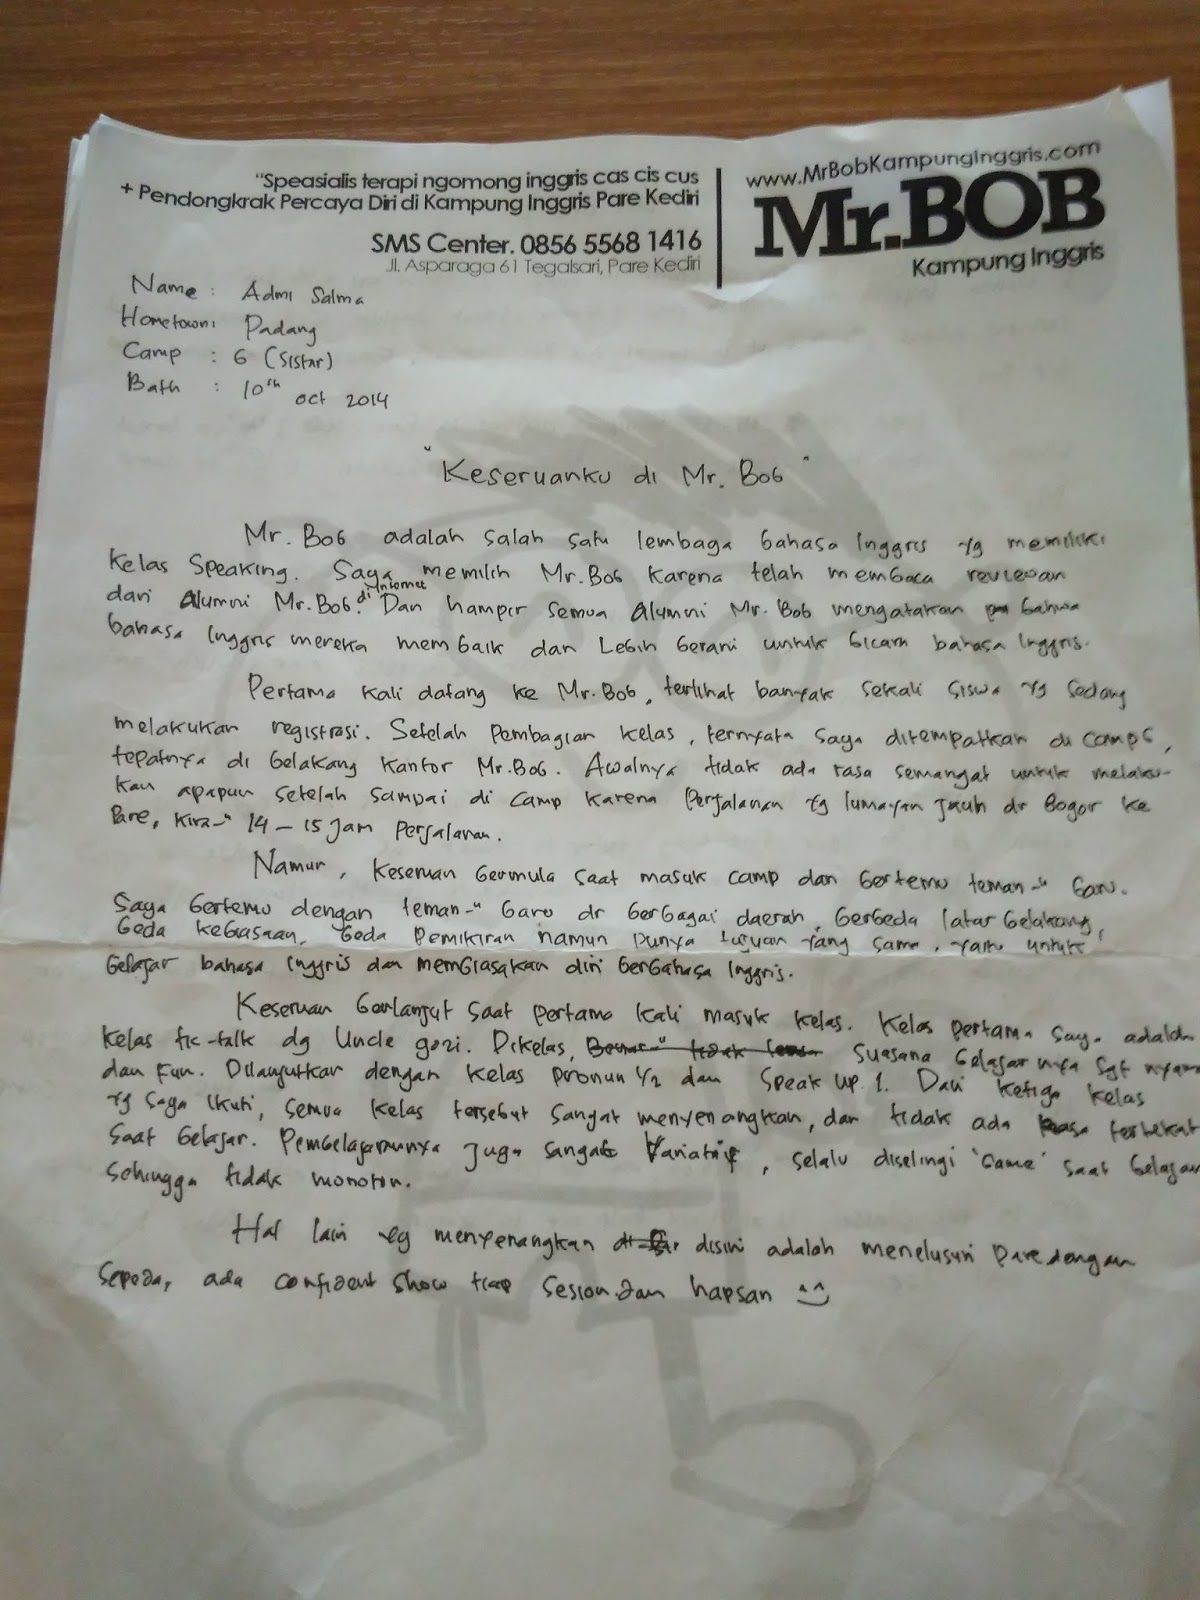 "Speasialis terapi ngomong inggris cas cis cus
+ Pendongkrak Percaya Diri di Kampung Inggris Pare Kediri
SMS Center. 0856 5568 1416
Jl. Asparaga 61 Tegalsari, Pare Kediri
www.MrBobKampungInggris.com
Mr.BOB
Kampung Inggris
Name : Admi Salma
Hometown: Padang
Camp : 6 (Sistar)
Bath : 10th oct 2014
"Keseruanku di Mr. Bob"
Mr. Bob adalah salah satu lembaga bahasa Inggris yg memiliki
kelas speaking. Saya memilih Mr. Bob karena telah membaca reviewan
dari Alumni Mr. Bob di internet. Dan hampir semua Alumni Mr. Bob mengatakan bahwa
bahasa Inggris mereka membaik dan lebih berani untuk bicara bahasa Inggris.
Pertama kali datang ke Mr. Bob, terlihat banyak sekali siswa yg sedang
melakukan registrasi. Setelah pembagian kelas, ternyata saya ditempatkan di camp 6,
tepatnya di belakang kantor Mr. Bob. Awalnya tidak ada rasa semangat untuk melaku-
kan apapun setelah sampai di camp karena perjalanan yg lumayan jauh dr Bogor ke
Pare, kira-" 14 - 15 jam perjalanan.
Namun, keseruan bermula saat masuk camp dan bertemu teman-" baru.
Saya bertemu dengan teman-" baru dr berbagai daerah, berbeda latar belakang,
beda kebiasaan, beda pemikiran namun punya tujuan yang sama, yaitu untuk
belajar bahasa Inggris dan membiasakan diri berbahasa Inggris.
Keseruan berlanjut saat pertama kali masuk kelas. Kelas pertama saya adalah
kelas tic-talk dg Uncle gozi. Dikelas, suasana belajar nya sgt nyaman
dan fun. Dilanjutkan dengan kelas pronun 1/2 dan speak up 1. Dari ketiga kelas
yg saya ikuti, semua kelas tersebut sangat menyenangkan, dan tidak ada rasa tertekan
saat belajar. Pembelajarannya juga sangat variatif, selalu diselingi 'Game' saat belajar
sehingga tidak monoton.
Hal lain yg menyenangkan disini adalah menelusuri Pare dengan
sepeda, ada confident show tiap sesion dan hapsan ^^